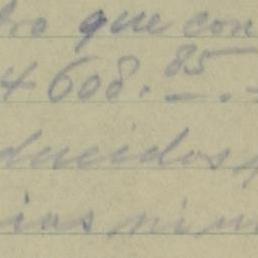 tro que con
4608.85
ducidos p
ias ni m